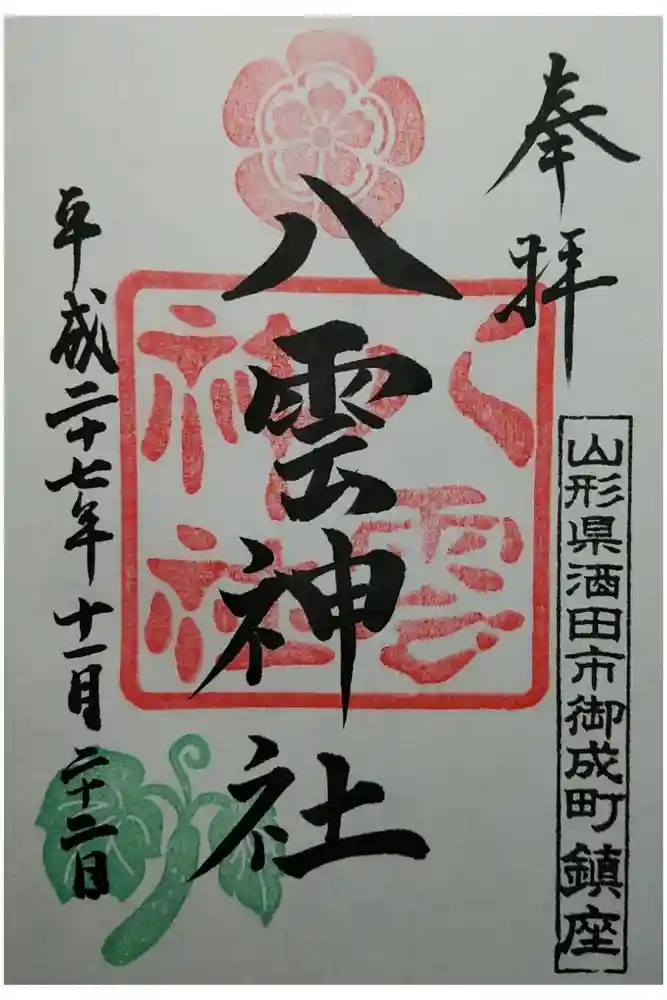 奉拝
山形県酒田市御成町鎮座
八雲神社
八雲神社
平成二十七年十一月二十二日